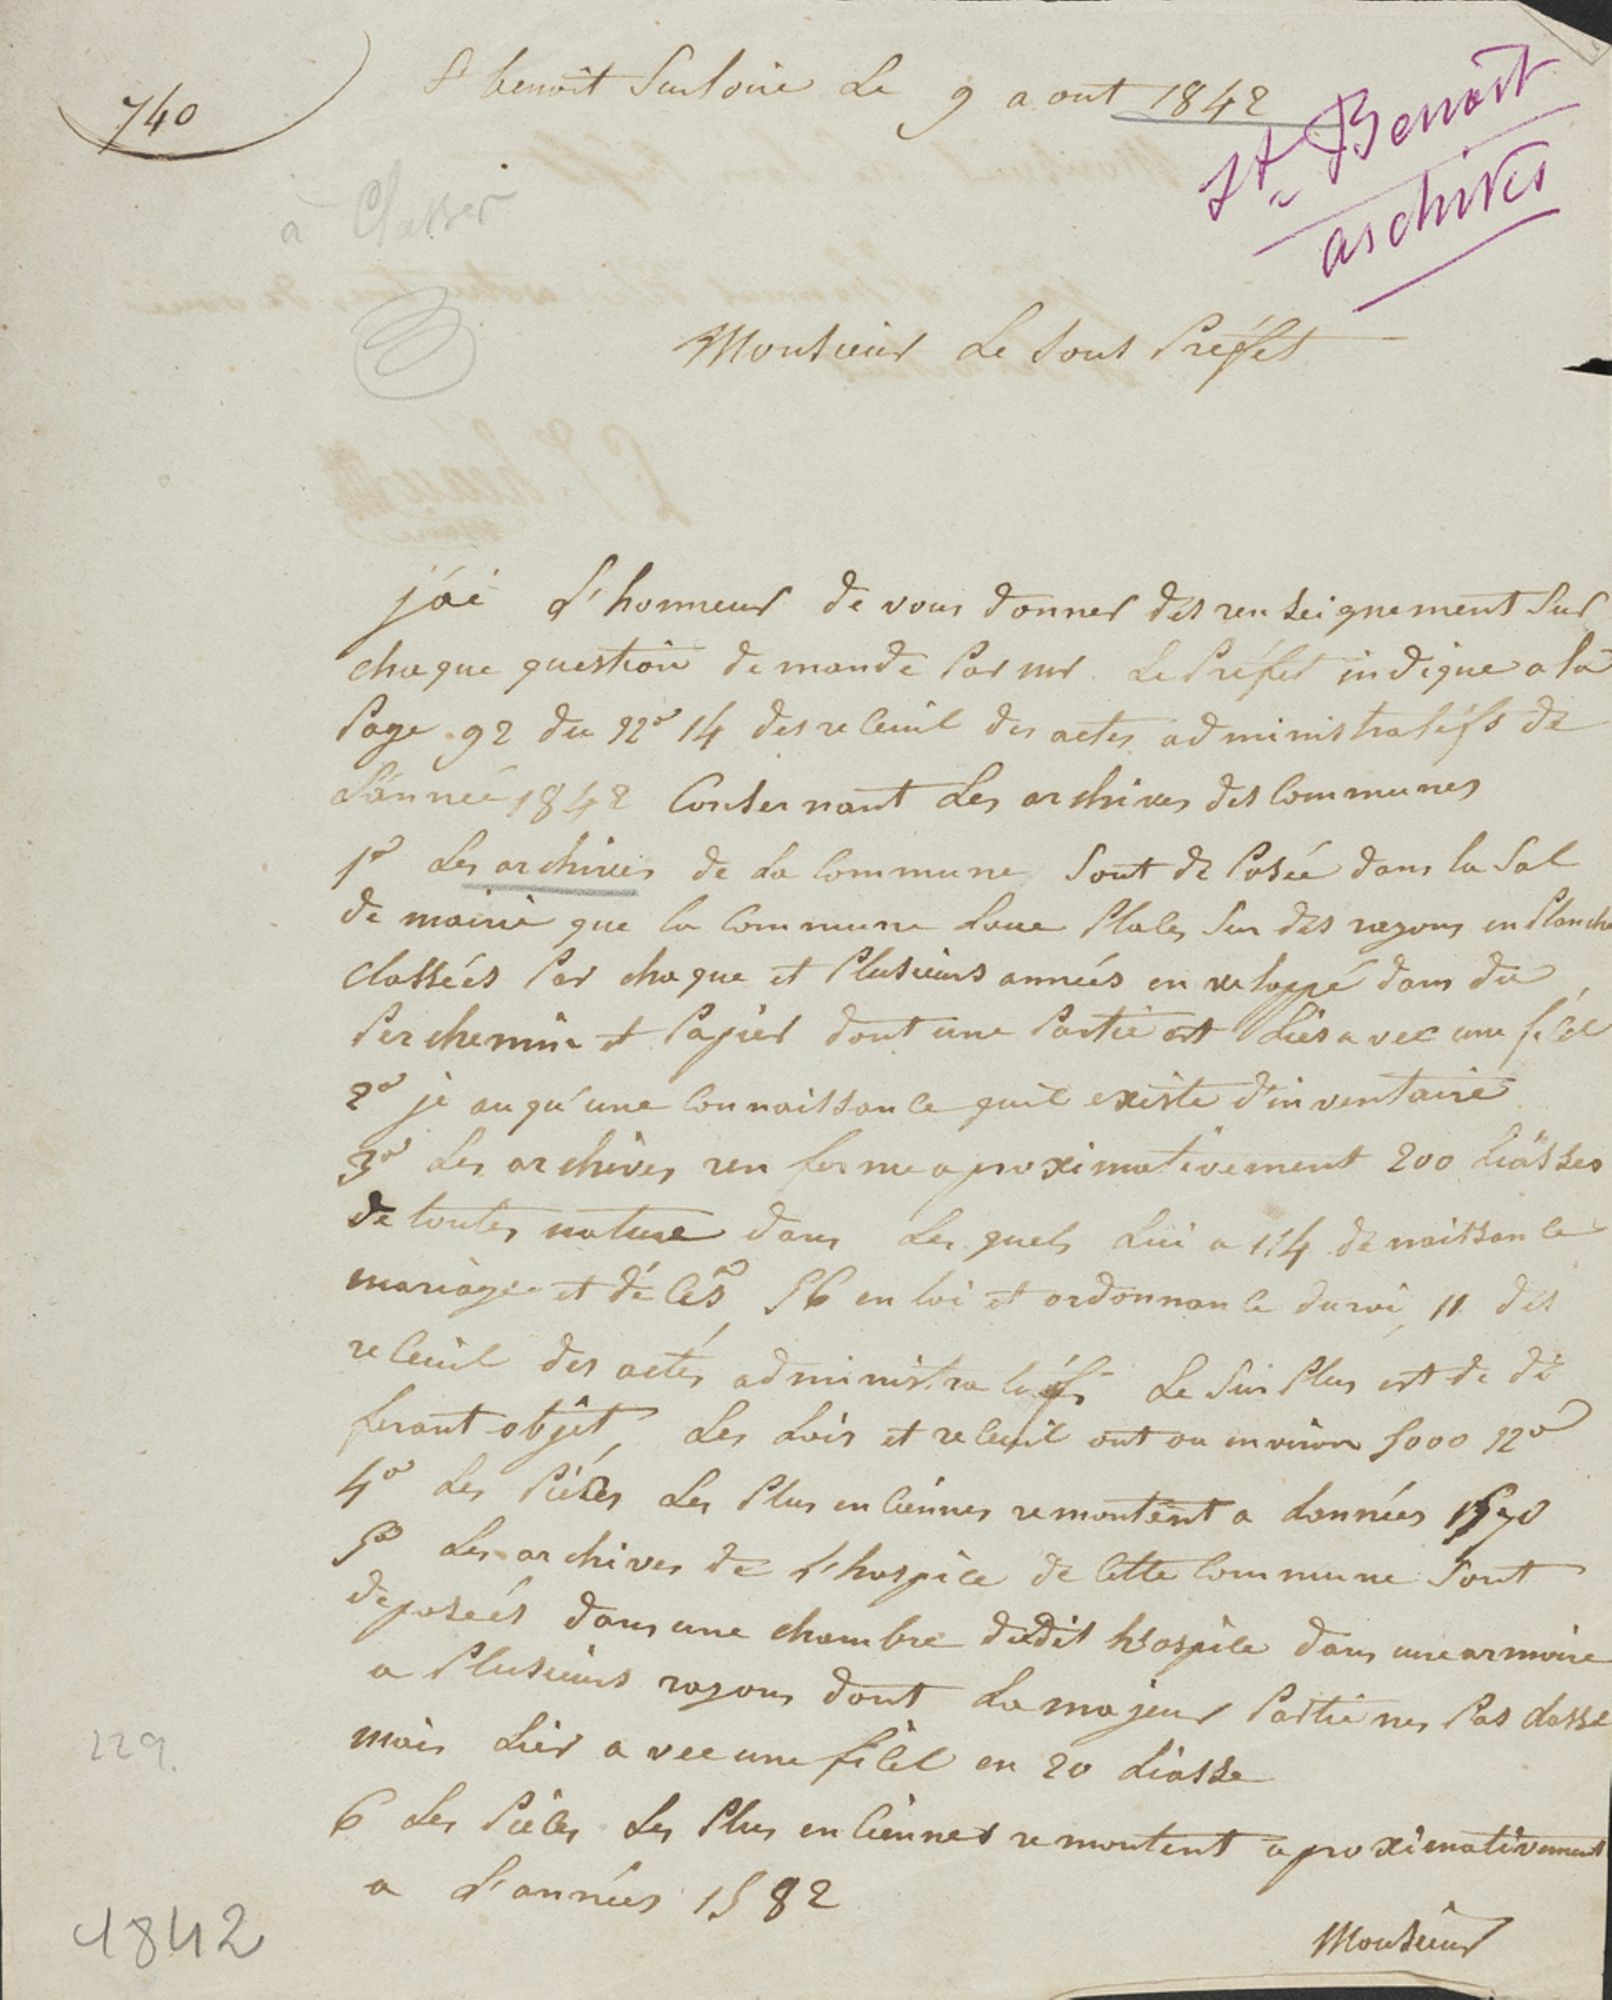 740
St benoît Surloire Le 9 aout 1842
St Benoît
archives
à Classer
Monsieur Le Sous Préfet
j'ái L'honneur de vous donner des renseignement Sur
chaque question demande Par mr Le Préfet indique a la
Page 92 du No 14 des receuil des actes administratifs de
L'année 1842 Consernant Les archives des Communes
1o Les archives de La Commune Sont de Posée dans la Sal
de mairie que la Commune Loue Placés Sur des rayons en Planche
classées Par chaque et Plusieurs années enveloppé dans du
Perchemin et Papier dont une Partie est Liés avec une ficel
2o je auqu'une Connaissance quil existe d'inventaire
3o Les archives renferme aproximativement 200 Liasses
de toutes nature dans Les quels Lui a 114 de naissance
mariage et décès 56 en loi et ordonnance du roi, 11 des
receuil des actes administratifs Le SurPlus est de di
ferant objet, Les Lois et receuil ont au environ 5000 No
4o Les Piéces Les Plus enciénnes remontent a données 1570
5o Les archives de L'hospice de Cette Commune Sont
deposées dans une chambre dudit hospice dans une armoire
a Plusieurs rayons dont La majeur Partie nes Pas classe
mais Liér avec une ficel en 20 Liasse
6 Les Piéces Les Plus enciennes remontent aproximativement
a L'années 1582
Monsieur
129.
1842